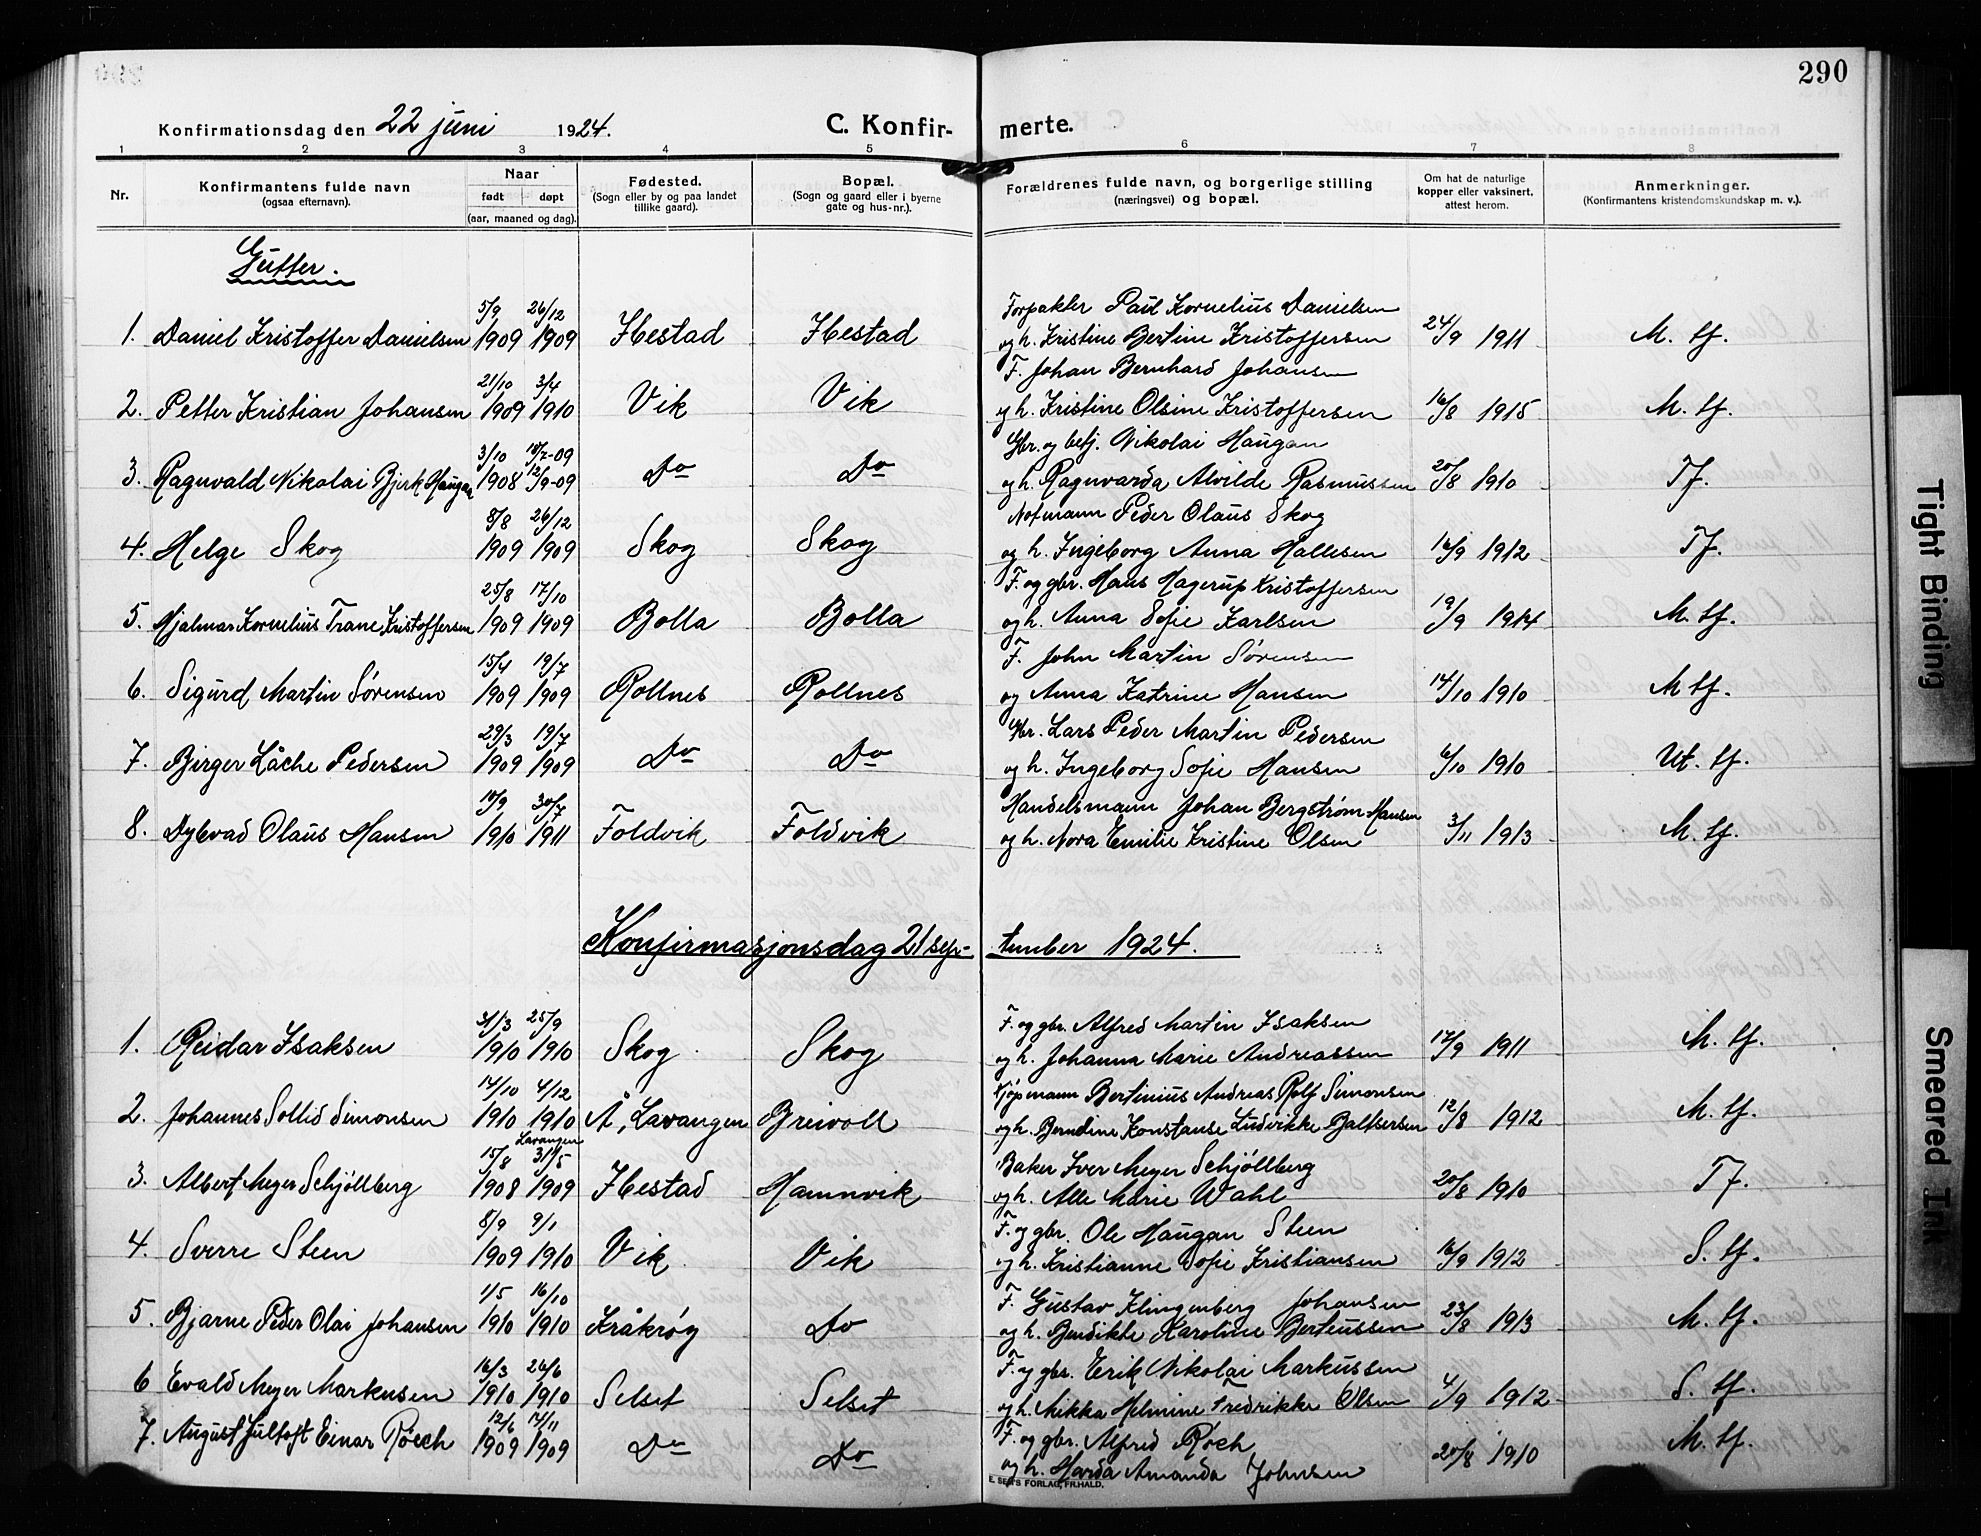 290
Konfirmationsdag den 22 juni 1924. C. Konfir- merte.
1 2 3 4 5 6 7 8
Nr. Konfirmantens fulde navn (ogsaa efternavn). Naar født døpt (aar, maaned og dag). Fødested. (Sogn eller by og paa landet tillike gaard). Bopæl. (Sogn og gaard eller i byerne gate og hus-nr.). Forældrenes fulde navn, og borgerlige stilling (næringsvei) og bopæl. Om hat de naturlige kopper eller vaksinert, attest herom. Anmerkninger. (Konfirmantens kristendomskundskap m. v.).
Gutter.
5/9 26/12 Forpakter Paul Kornelius Danielsen
1. Daniel Kristoffer Danielsen 1909 1909 Ibestad Ibestad og h. Kristine Bertine Kristoffersen 24/9 1911 M. tf.
21/10 3/4 F. Johan Bernhard Johansen
2. Petter Kristian Johansen 1909 1910 Vik Vik og h. Kristine Olsine Kristoffersen 16/8 1915 M. tf.
3/10 18/7-09 Gbr. og betj. Nikolai Haugan
3. Ragnvald Nikolai Bjerk Haugan 1908 12/9-09 Do Do og h. Ragnvarda Alvilde Rasmussen 20/8 1910 Tf.
8/8 26/12 Notmann Peder Olaus Skog
4. Helge Skog 1909 1909 Skog Skog og h. Ingeborg Anna Hallesen 16/9 1912 Tf.
25/8 17/10 F. og gbr. Hans Hagerup Kristoffersen
5. Hjalmar Kornelius Trane Kristoffersen 1909 1909 Bolla Bolla og h. Anna Sofie Karlsen 19/9 1914 M. tf.
15/4 19/7 F. John Martin Sørensen
6. Sigurd Martin Sørensen 1909 1909 Rollnes Rollnes og Anna Katrine Hansen 14/10 1910 M tf.
29/3 19/7 Gbr. Lars Peder Martin Pedersen
7. Birger Låche Pedersen 1909 1909 Do Do og h. Ingeborg Sofie Hansen 6/10 1910 Ut. tf.
18/9 30/7 Handelsmann Johan Bergstrøm Hansen
8. Dybvad Olaus Hansen 1910 1911 Foldvik Foldvik og h. Nora Emilie Kristine Olsen 3/11 1913 M. tf.
Konfirmasjonsdag 21 sep- tember 1924.
31/3 25/9 F. og gbr. Alfred Martin Isaksen
1. Reidar Isaksen 1910 1910 Skog Skog og h. Johanna Marie Andreassen 12/9 1911 M. tf.
14/10 4/12 Kjøpmann Bertinius Andreas Rolf Simonsen
2. Johannes Sollid Simonsen 1910 1910 Å, Lavangen Breivoll og h. Berndine Konstanse Ludvikke Baltsersen 12/8 1912 M. tf.
Lavangen
15/8 31/5 Baker Iver Meyer Schjøllberg
3. Albert Meyer Schjøllberg 1908 1909 Ibestad Hamnvik og h. Alle Marie Wahl 20/8 1910 Tf.
8/9 9/1 F. og gbr. Ole Haugan Steen
4. Sverre Steen 1909 1910 Vik Vik og h. Kristianne Sofie Kristiansen 16/9 1912 S. tf.
1/5 16/10 F. Gustav Klingenberg Johansen
5. Bjarne Peder Olai Johansen 1910 1910 Kråkrøg Do og h. Bendikte Karoline Berteussen 23/8 1913 M. tf.
16/3 26/6 F. og gbr. Erik Nikolai Markussen
6 Evald Meyer Markusen 1910 1910 Selset Selset og h. Mikka Helmine Fredrikke Olsen 4/9 1912 S. tf.
12/6 14/11 F. og gbr. Alfred Røch
7. August Jultoft Einar Røech 1909 1909 Do Do og h. Harda Amanda Johnsen 20/8 1910 M. tf.
E. SEM'S FORLAG, FR.HALD.
Tight Binding
Smeared Ink